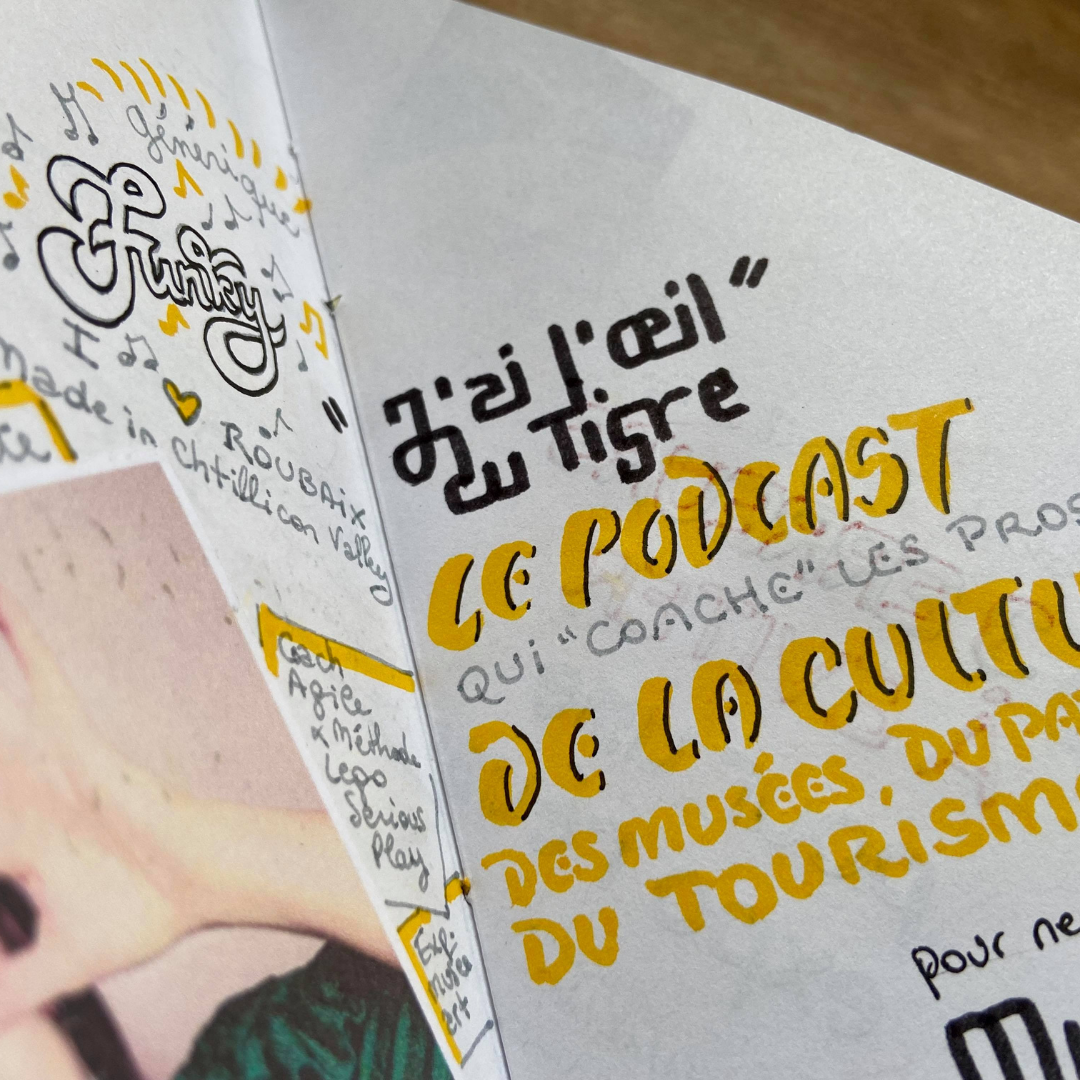 générique
Funky
I
ROUBAIX
made in Chtillicon Valley
Coach
Agile
& Méthode
Lego
Serious
Play
Exp.
Musée
"J'ai l'œil"
du Tigre
LE PODCAST
QUI "COACHE" LES PROS
DE LA CULTU
DES MUSÉES, DU PA
DU TOURISM
pour ne